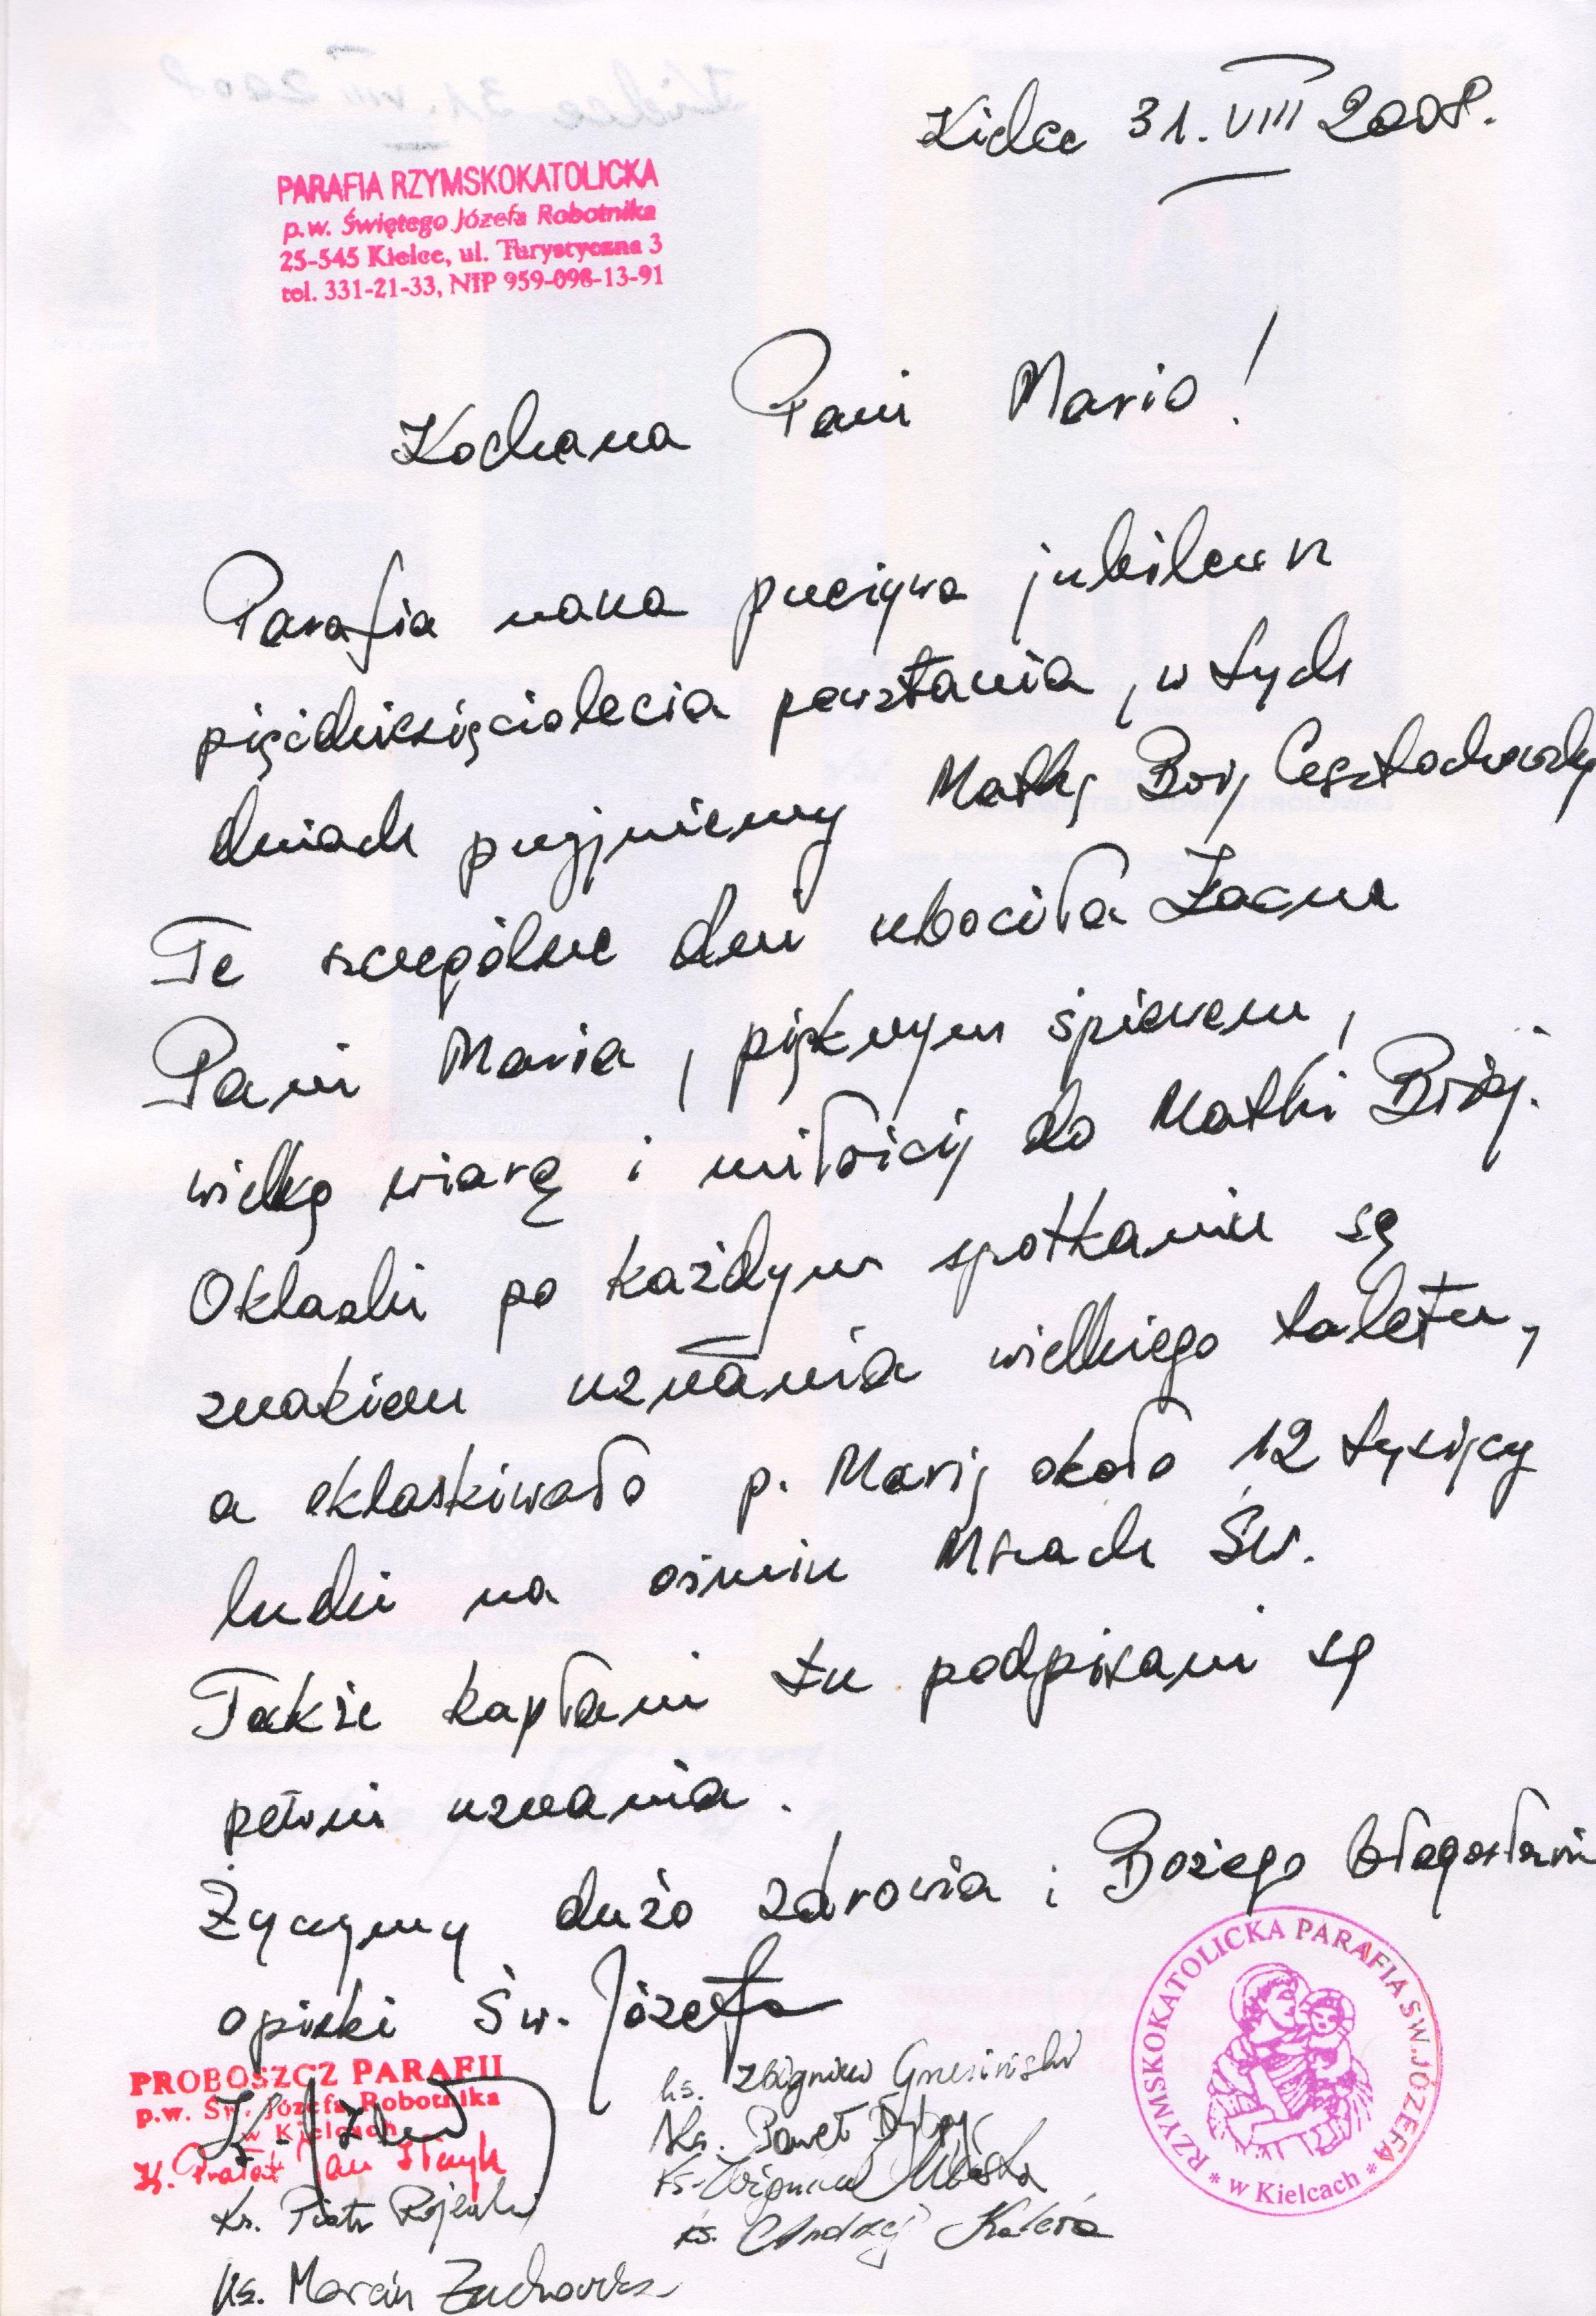 Kielce 31.VIII 2008.
PARAFIA RZYMSKOKATOLICKA
p.w. Świętego Józefa Robotnika
25-545 Kielce, ul. Turystyczna 3
tel. 331-21-33, NIP 959-098-13-91
Kochana Pani Mario!
Parafia nasza przeżywa jubileusz
pięćdziesięciolecia powstania, w tych
dniach przyjmiemy Matkę Bożą Częstochowską
Te szczególne dni ubogaciła Zacna
Pani Maria, pięknym śpiewem,
wielką wiarą i miłością do Matki Bożej.
Oklaski po każdym spotkaniu są
znakiem uznania wielkiego taletu,
a oklaskiwało p. Marię około 12 tysięcy
ludzi na ośmiu Mszach Św.
Także kapłani tu podpisani są
pełni uznania.
Życzymy dużo zdrowia i Bożego błogosławi
opieki Św. Józefa
PROBOSZCZ PARAFII
p.w. Św. Józefa Robotnika
w Kielcach
K. Prałat Jan
ks. Zbigniew
Ks. Paweł
Ks. Zbigniew
Ks. Andrzej Kaleta
Ks. Piotr
Ks. Marcin
RZYMSKOKATOLICKA PARAFIA ŚW. JÓZEFA * w Kielcach *